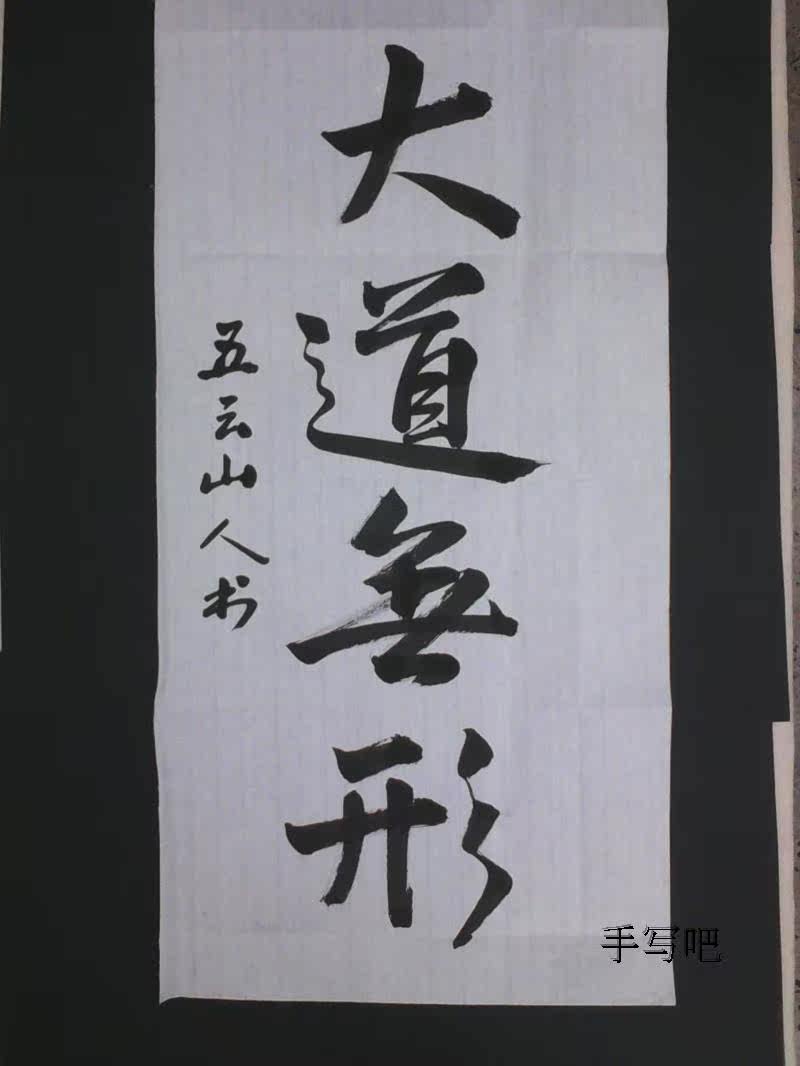 大道無形
五云山人书
手写吧